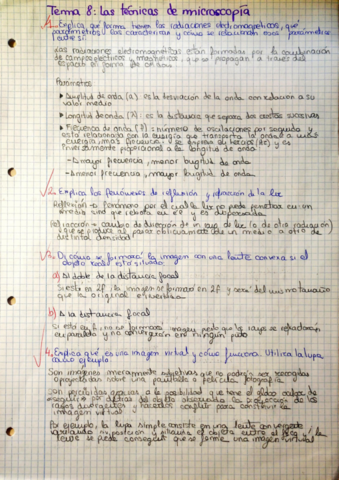 Tema 8: las técnicas de microscopía
1. Explica qué forma tienen las radiaciones electromagnéticos, qué
parámetros las caracterizan y cómo se relacionan esos parámetros
entre sí.
Las radiaciones electromagnéticas están formadas por la combinación
de campos eléctricos y magnéticos, que se propagan a través del
espacio en forma de ondas
Parámetros
▸ Amplitud de onda (a): es la desviación de la onda con relación a su
valor medio
▸ Longitud de onda (λ): es la distancia que separa dos crestas sucesivas
▸ Frecuencia de onda (f): número de oscilaciones por segundo y
está relacionada con la energía que transporta la onda a más
energía, más frecuencia y se expresa en herzios (Hz) y es
inversamente proporcional a la longitud de onda
- A mayor frecuencia, menor longitud de onda
- A menor frecuencia, mayor longitud de onda
2. Explica los fenómenos de reflexión y refracción de la luz
Reflexión → fenómeno por el cual la luz no puede penetrar en un
medio sino que rebota en él y es dispersada
Refracción → cambio de dirección de un rayo de luz (o de otra radiación)
que se produce al pasar oblicuamente de un medio a otro de
distinta densidad
3. Di cómo se formará la imagen con una lente convexa si el
objeto real está situado:
a) Al doble de la distancia focal
Si está en 2f, la imagen se formará en 2f y será del mismo tamaño
que la original e invertida
b) A la distancia focal
Si está en f, no se formará imagen puesto que los rayos se refractarán
en paralelo y no convergerán en ningún punto
4. Explica qué es una imagen virtual y cómo funciona. Utiliza la lupa
como ejemplo.
Son imágenes meramente subjetivas que no podrán ser recogidas
o proyectadas sobre una pantalla o película fotográfica
Son percibidas gracias a la posibilidad que tiene el ojo o cerebro de
seguir por detrás del objeto observado, la proyección de los
rayos divergentes y hacerlos confluir para construir la
imagen virtual
Por ejemplo, la lupa simple consiste en una lente convergente
variando su posición y situando el objeto entre el foco y la
lente se puede conseguir que se forme una imagen virtual